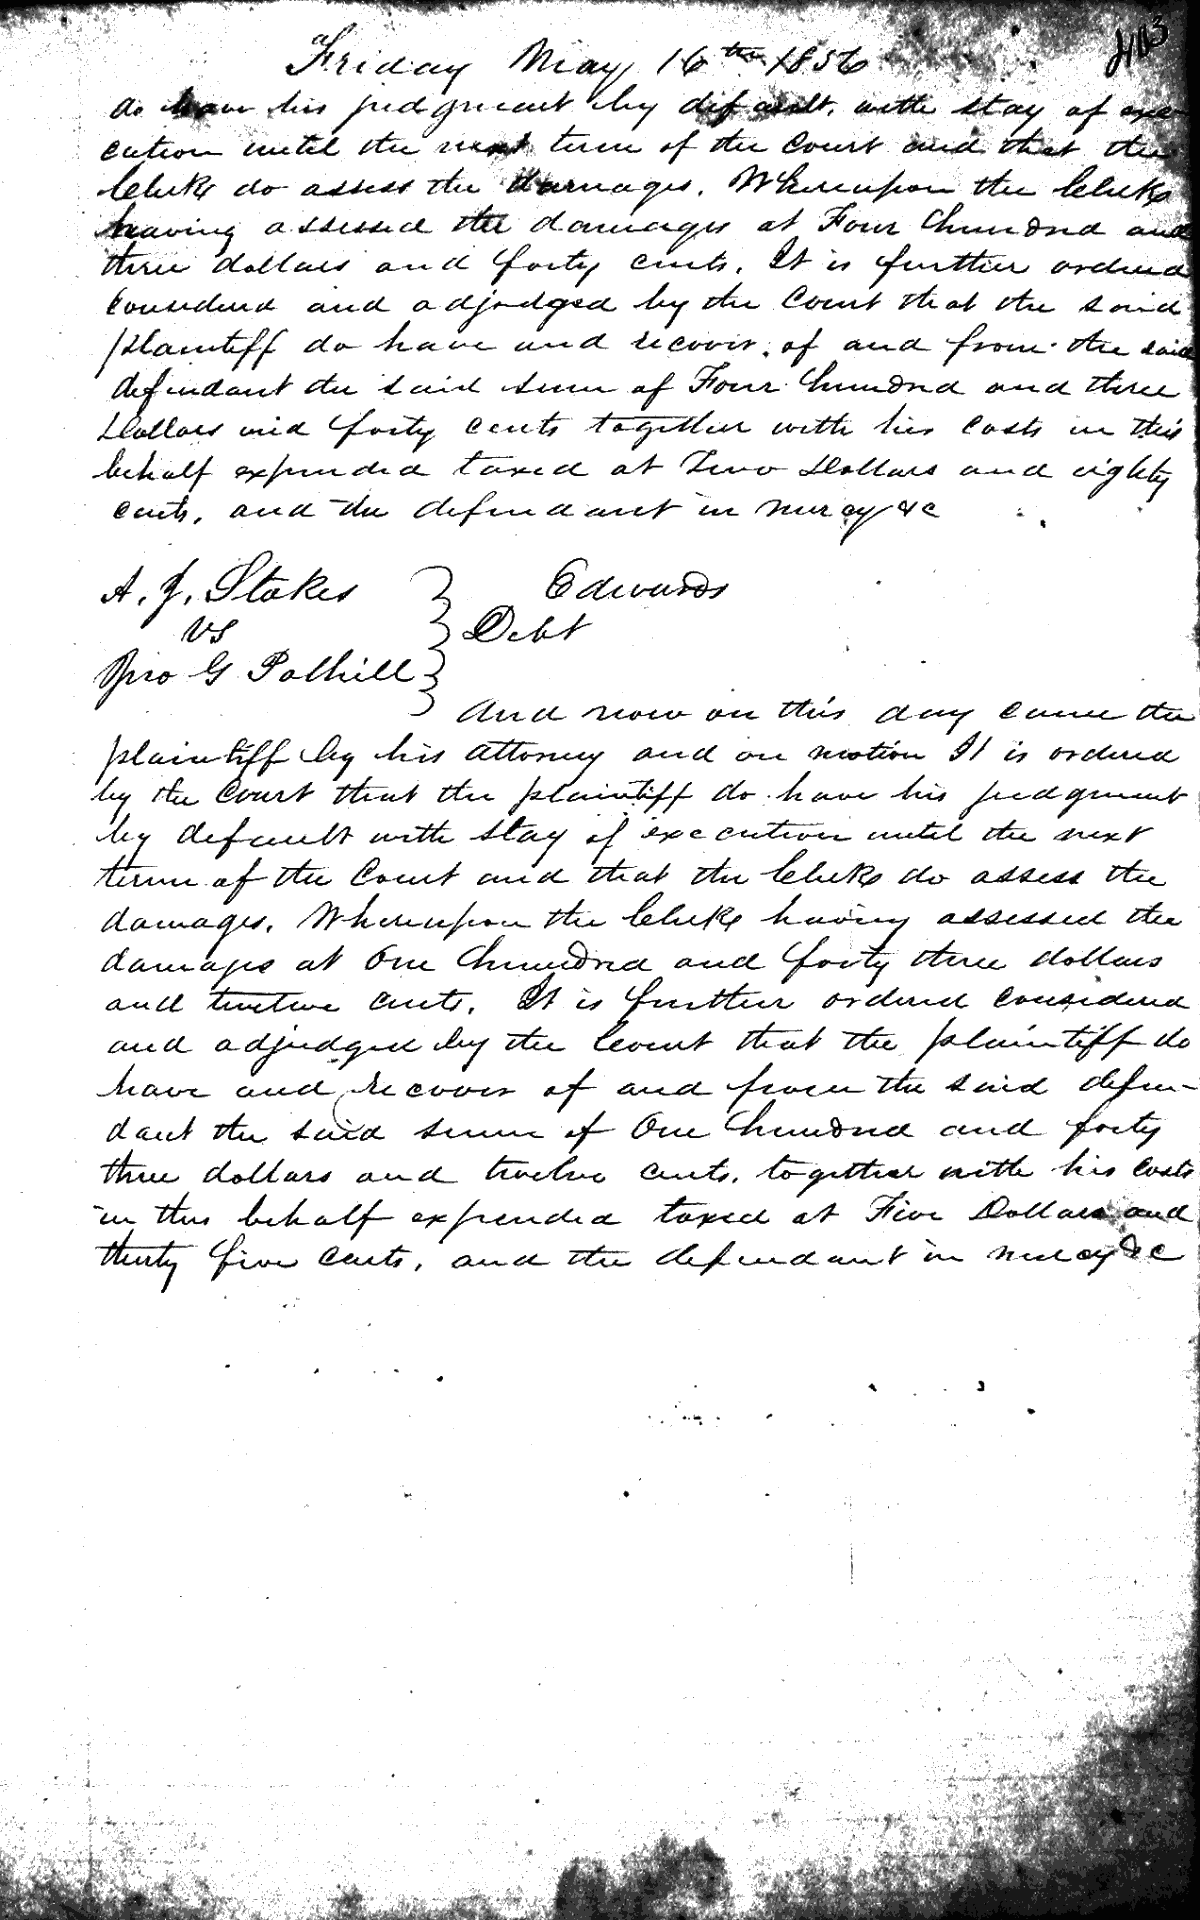 Friday May 16th 1856
do have his judgment by default, with stay of exe-
cution until the next term of the Court and that the
Clerke do assess the damages. Whereupon the Clerke
having assessed the damages at Four hundred and
three dollars and forty cents. It is further ordered
considered and adjudged by the Court that the said
plaintiff do have and recover of and from the said
defendant the said sum of Four hundred and three
Dollars and forty cents together with his costs in this
behalf expended taxed at Two Dollars and eighty
cents, and the defendant in mercy &c
A. J. Stokes Edwards
vs Debt
G Polhill
And now on this day came the
plaintiff by his attorney and on motion It is ordered
by the Court that the plaintiff do have his judgment
by default with stay of execution until the next
term of the Court and that the Clerke do assess the
damages. Whereupon the Clerke having assessed the
damages at One hundred and forty three dollars
and twelve cents. It is further ordered considered
and adjudged by the Court that the plaintiff do
have and recover of and from the said defen-
dant the said sum of One hundred and forty
three dollars and twelve cents, together with his costs
in this behalf expended taxed at Five Dollars and
thirty five cents, and the defendant in mercy &c